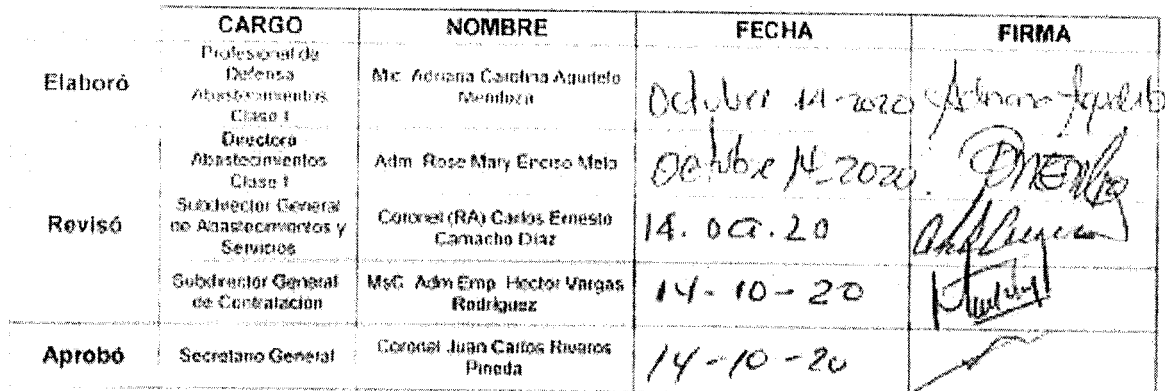 CARGO NOMBRE FECHA FIRMA
Elaboró
Profesional de
Defensa
Abastecimientos
Clase I
Mic. Adriana Carolina Agudelo
Mendoza
October 14-2020 Adriana Agudelo
Directora
Abastecimientos
Clase I
Adm. Rose Mary Enciso Mela
Octubre 14-2020.
Revisó
Subdirector General
de Abastecimientos y
Servicios
Coronel (RA) Carlos Ernesto
Camacho Díaz
14. Oct. 20
Subdirector General
de Contratación
MsC. Adm Emp. Hector Vargas
Rodríguez
14-10-20
Aprobó
Secretario General
Coronel Juan Carlos Riveros
Pineda
14-10-20